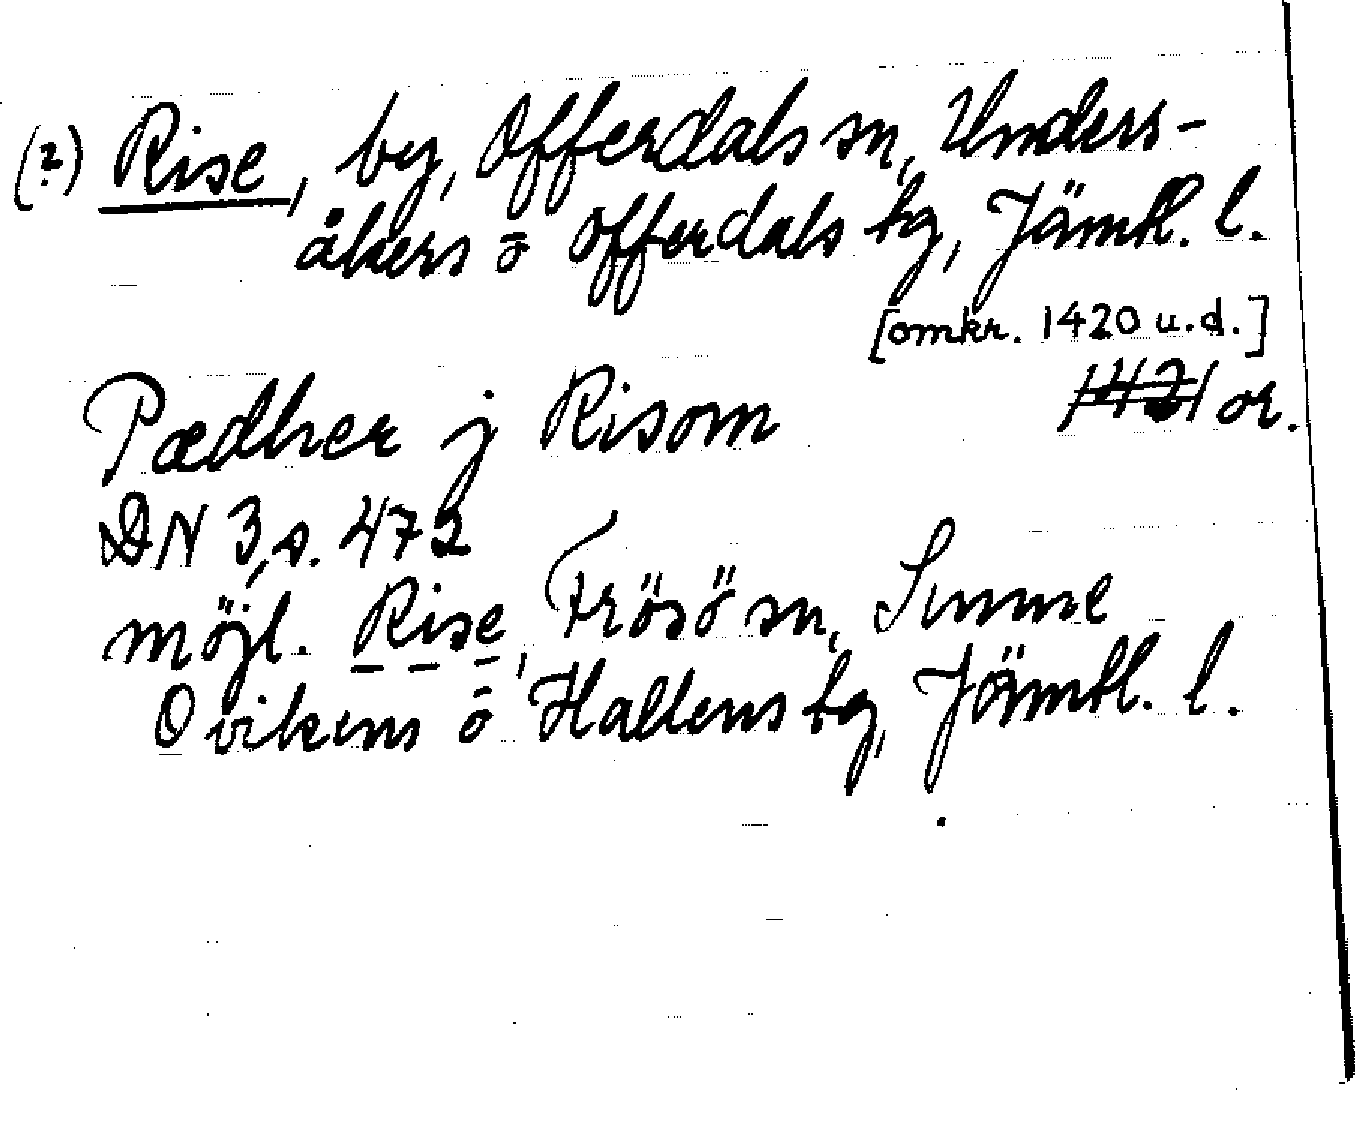 (?) Rise, by, Offerdals sn, Unders-
åkers o Offerdals tg, Jämtl. l.
[omkr. 1420 u.d.]
Pædher j Risom 1421 or.
DN 3, s. 472
möjl. Rise, Frösö sn, Sunne
Ovikens o Hallens tg, Jämtl. l.